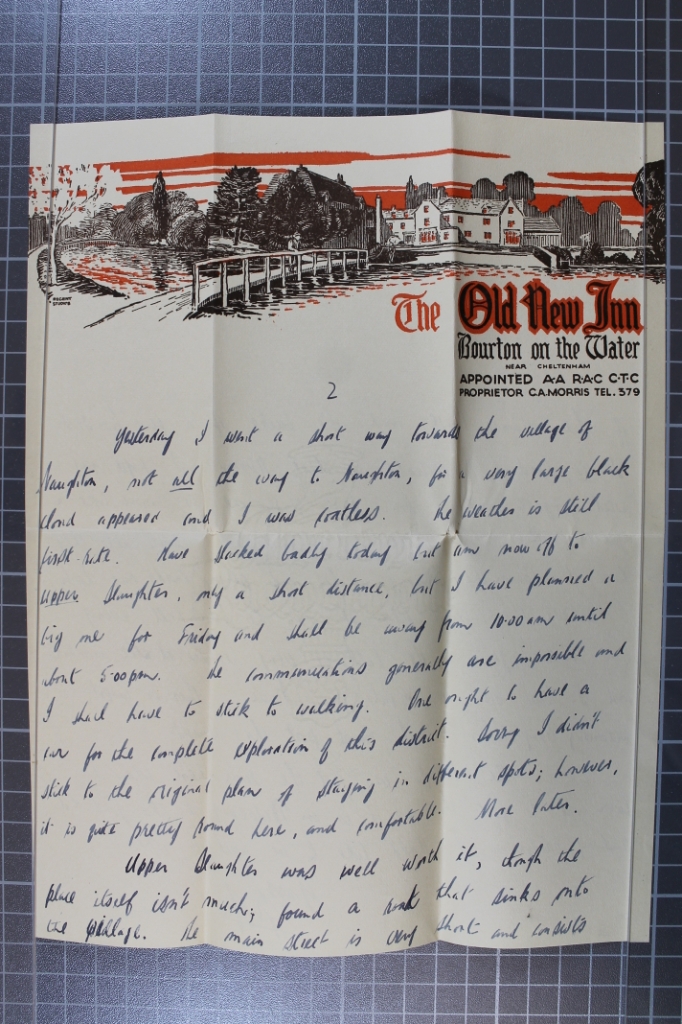 REGENT
STUDIO
The Old New Inn
Bourton on the Water
NEAR CHELTENHAM
APPOINTED A·A R·A·C C·T·C
PROPRIETOR C.A.MORRIS TEL. 379
2
Yesterday I went a short way towards the village of
Naughton, not all the way to Naughton, for a very large black
cloud appeared and I was coatless. The weather is still
first-rate. Have slacked badly today but am now off to
Upper Slaughter, only a short distance, but I have planned a
big one for Friday and shall be away from 10.00am until
about 5.00pm. The communications generally are impossible and
I shall have to stick to walking. One ought to have a
car for the complete exploration of this district. Sorry I didn't
stick to the original plan of staying in different spots; however,
it is quite pretty round here, and comfortable. More later.
Upper Slaughter was well worth it, though the
place itself isn't much; found a road that sinks onto
the village. The main street is very short and consists